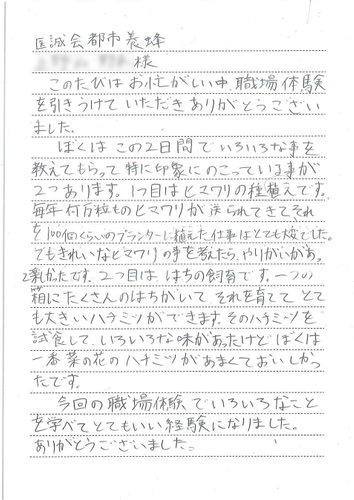 医誠会都市養蜂
様
このたびはお忙がしい中、職場体験
を引きうけていただきありがとうござい
ました。
ぼくはこの2日間でいろいろな事を
教えてもらって特に印象にのこっている事が
2つあります。1つ目はヒマワリの種植えです。
毎年何万粒ものヒマワリが送られてきてそれ
を100個くらいのプランターに植えた仕事はとても大変でした。
でもきれいなヒマワリの事を考えたら、やりがいがあ
かったです。2つ目は、はちの飼育です。一つの
箱にたくさんのはちがいて、それを育てて、とて
も大きいハチミツができます。そのハチミツを
試食して、いろいろな味があったけどぼくは
一番菜の花のハチミツがあまくておいしかっ
たです。
今回の職場体験でいろいろなこと
を学べてとてもいい経験になりました。
ありがとうございました。